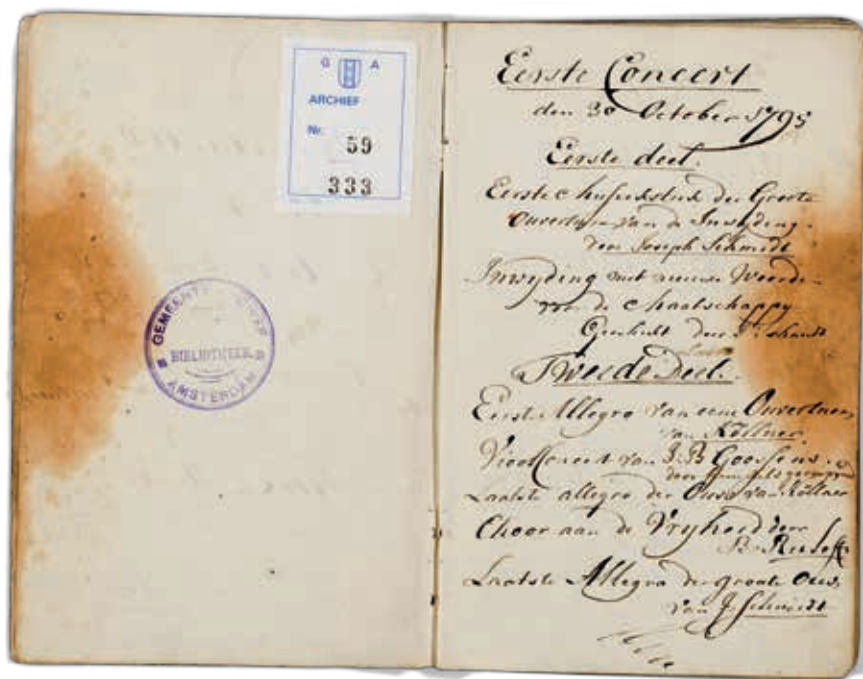 G A
ARCHIEF
Nr. 59
333
GEMEENTE
BIBLIOTHEEK
AMSTERDAM
Eerste Concert
den 30 October 1795
Eerste deel.
Eerste Musiekstuk der Groote
Ouverture van de Inwyding
door Joseph Schmidt
Inwyding met nieuwe Woorden
voor de Maatschappy
door J. Schmidt
Tweede Deel.
Eerste Allegro van eene Ouverture
van Köllner
Vioolconcert van J. B. Goossens.
door
Laatste allegro der Ouve van Köllner
Choor aan de Vryheid door
B. Ruloffs
Laatste Allegro der groote Ouv.
van J. Schmidt